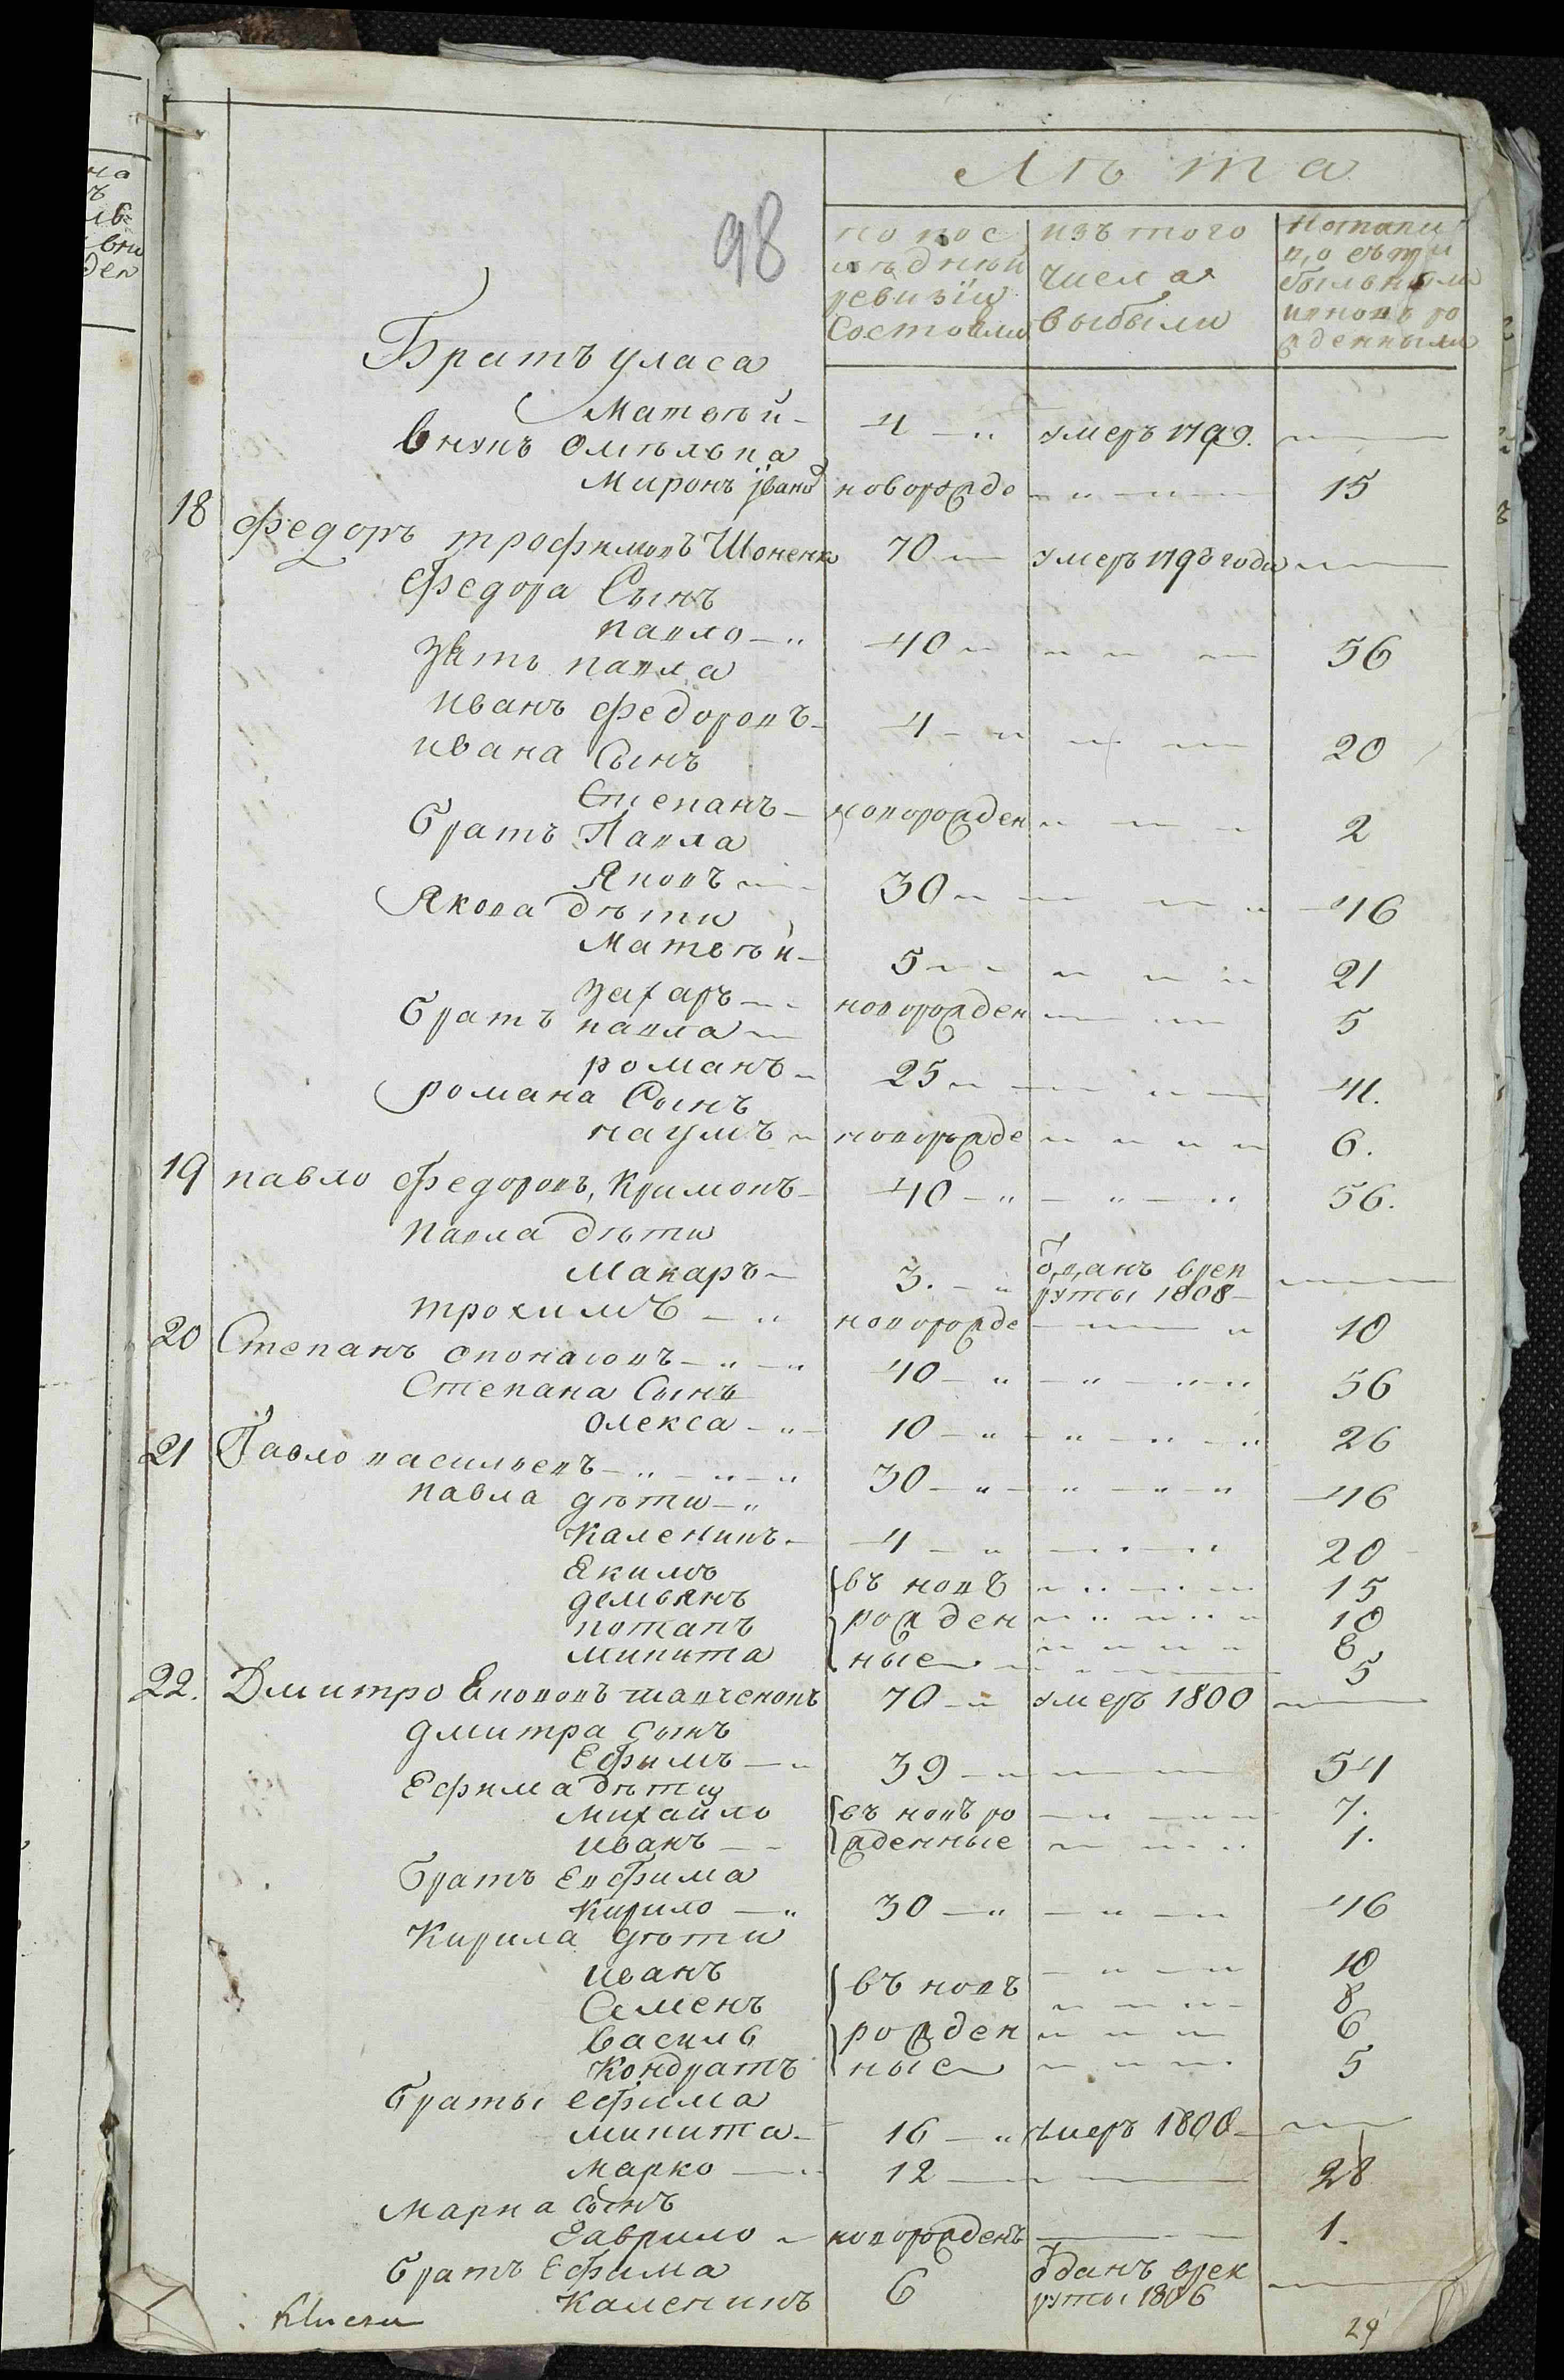 98
Лѣта
по пос
лѣдней
ревизіи
Состояли
изъ того
числа
выбыли
Братъ уласа
Матвѣй - 4 умеръ 1799.
внукъ Омѣлька
Миронъ новорожде 15
18 Федоръ трофимовъ 70 умеръ года
Федора Сынъ
павло 40 56
Зять павла
иванъ Федоровъ 4 20
ивана Сынъ
Степанъ новорожден 2
братъ Павла
Яковъ 30 46
Якова дѣти
Матвѣй 5 21
захаръ новорожден 5
братъ павла
романъ 25 41.
романа Сынъ
наумъ новорожде 6.
19 павло Федоровъ, 40 56.
павла дѣти
Макаръ 3. отданъ врек
руты 1808
трохимъ новорожде 10
20 Степанъ 40 56
Степана Сынъ
Олекса 10 26
21 Павло васильевъ 30 46
павла дѣти
Каленикъ 4 20
Екимъ въ новѣ 15
демьянъ рожден 10
потапъ 8
микита ные 5
22. Дмитро 70 умеръ 1800
дмитра сынъ
Ефимъ 39 54
Ефима дѣти
михайло въ новѣ ро 7.
иванъ жденные 1.
братъ Евфима
Кирило 30 46
Кирила дѣти
иванъ въ новѣ 10
Семенъ 8
василь рожден 6
Кондратъ ные 5
браты ефима
микита 16 умеръ 1800
марко 12 28
марка сынъ
Гаврило новорожденъ 1.
братъ Ефима
Каленикъ 6 отданъ врек
руты 1806
29